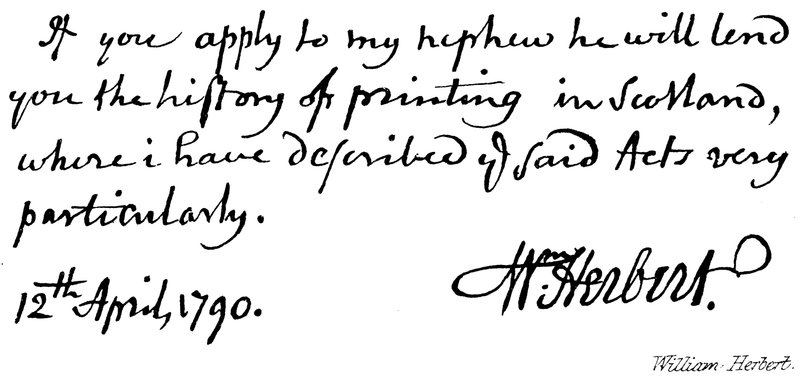 If you apply to my nephew he will lend
you the hiſtory of printing in Scotland,
where i have deſcribed yͤ ſaid Acts very
particularly.
12th April, 1790.
Wm. Herbert.
William Herbert.